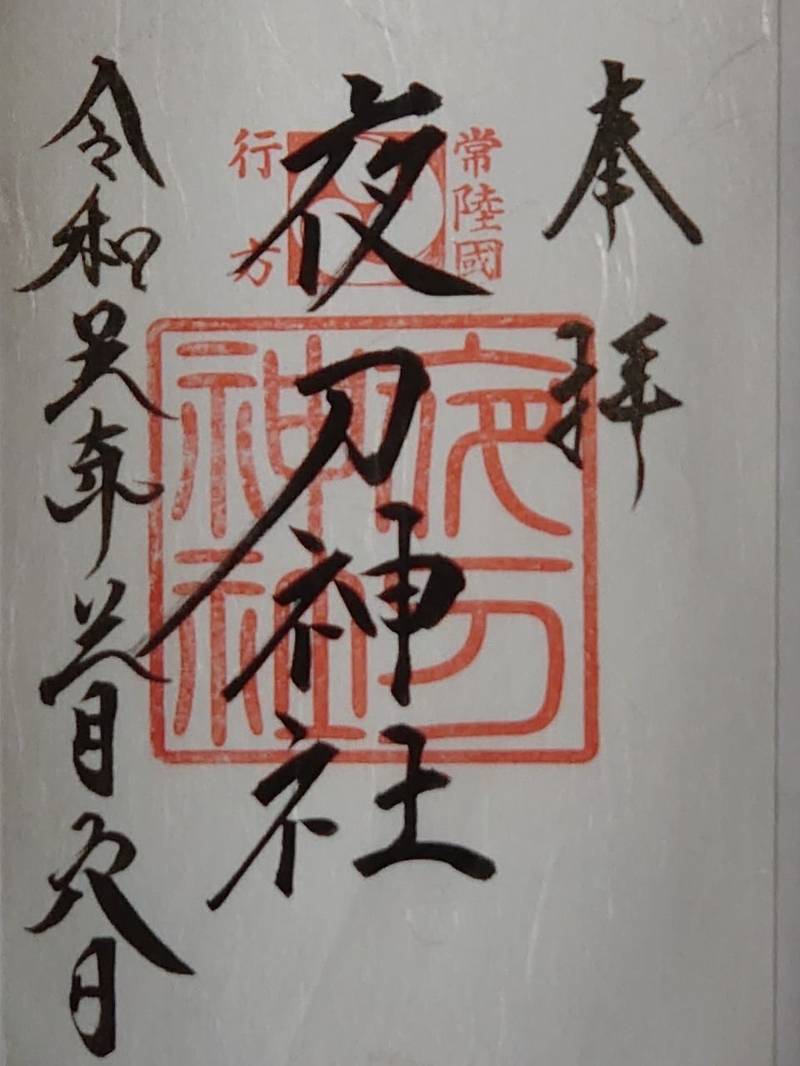 奉拝
常陸國
行方
夜刀神社
夜刀神社
令和年月日